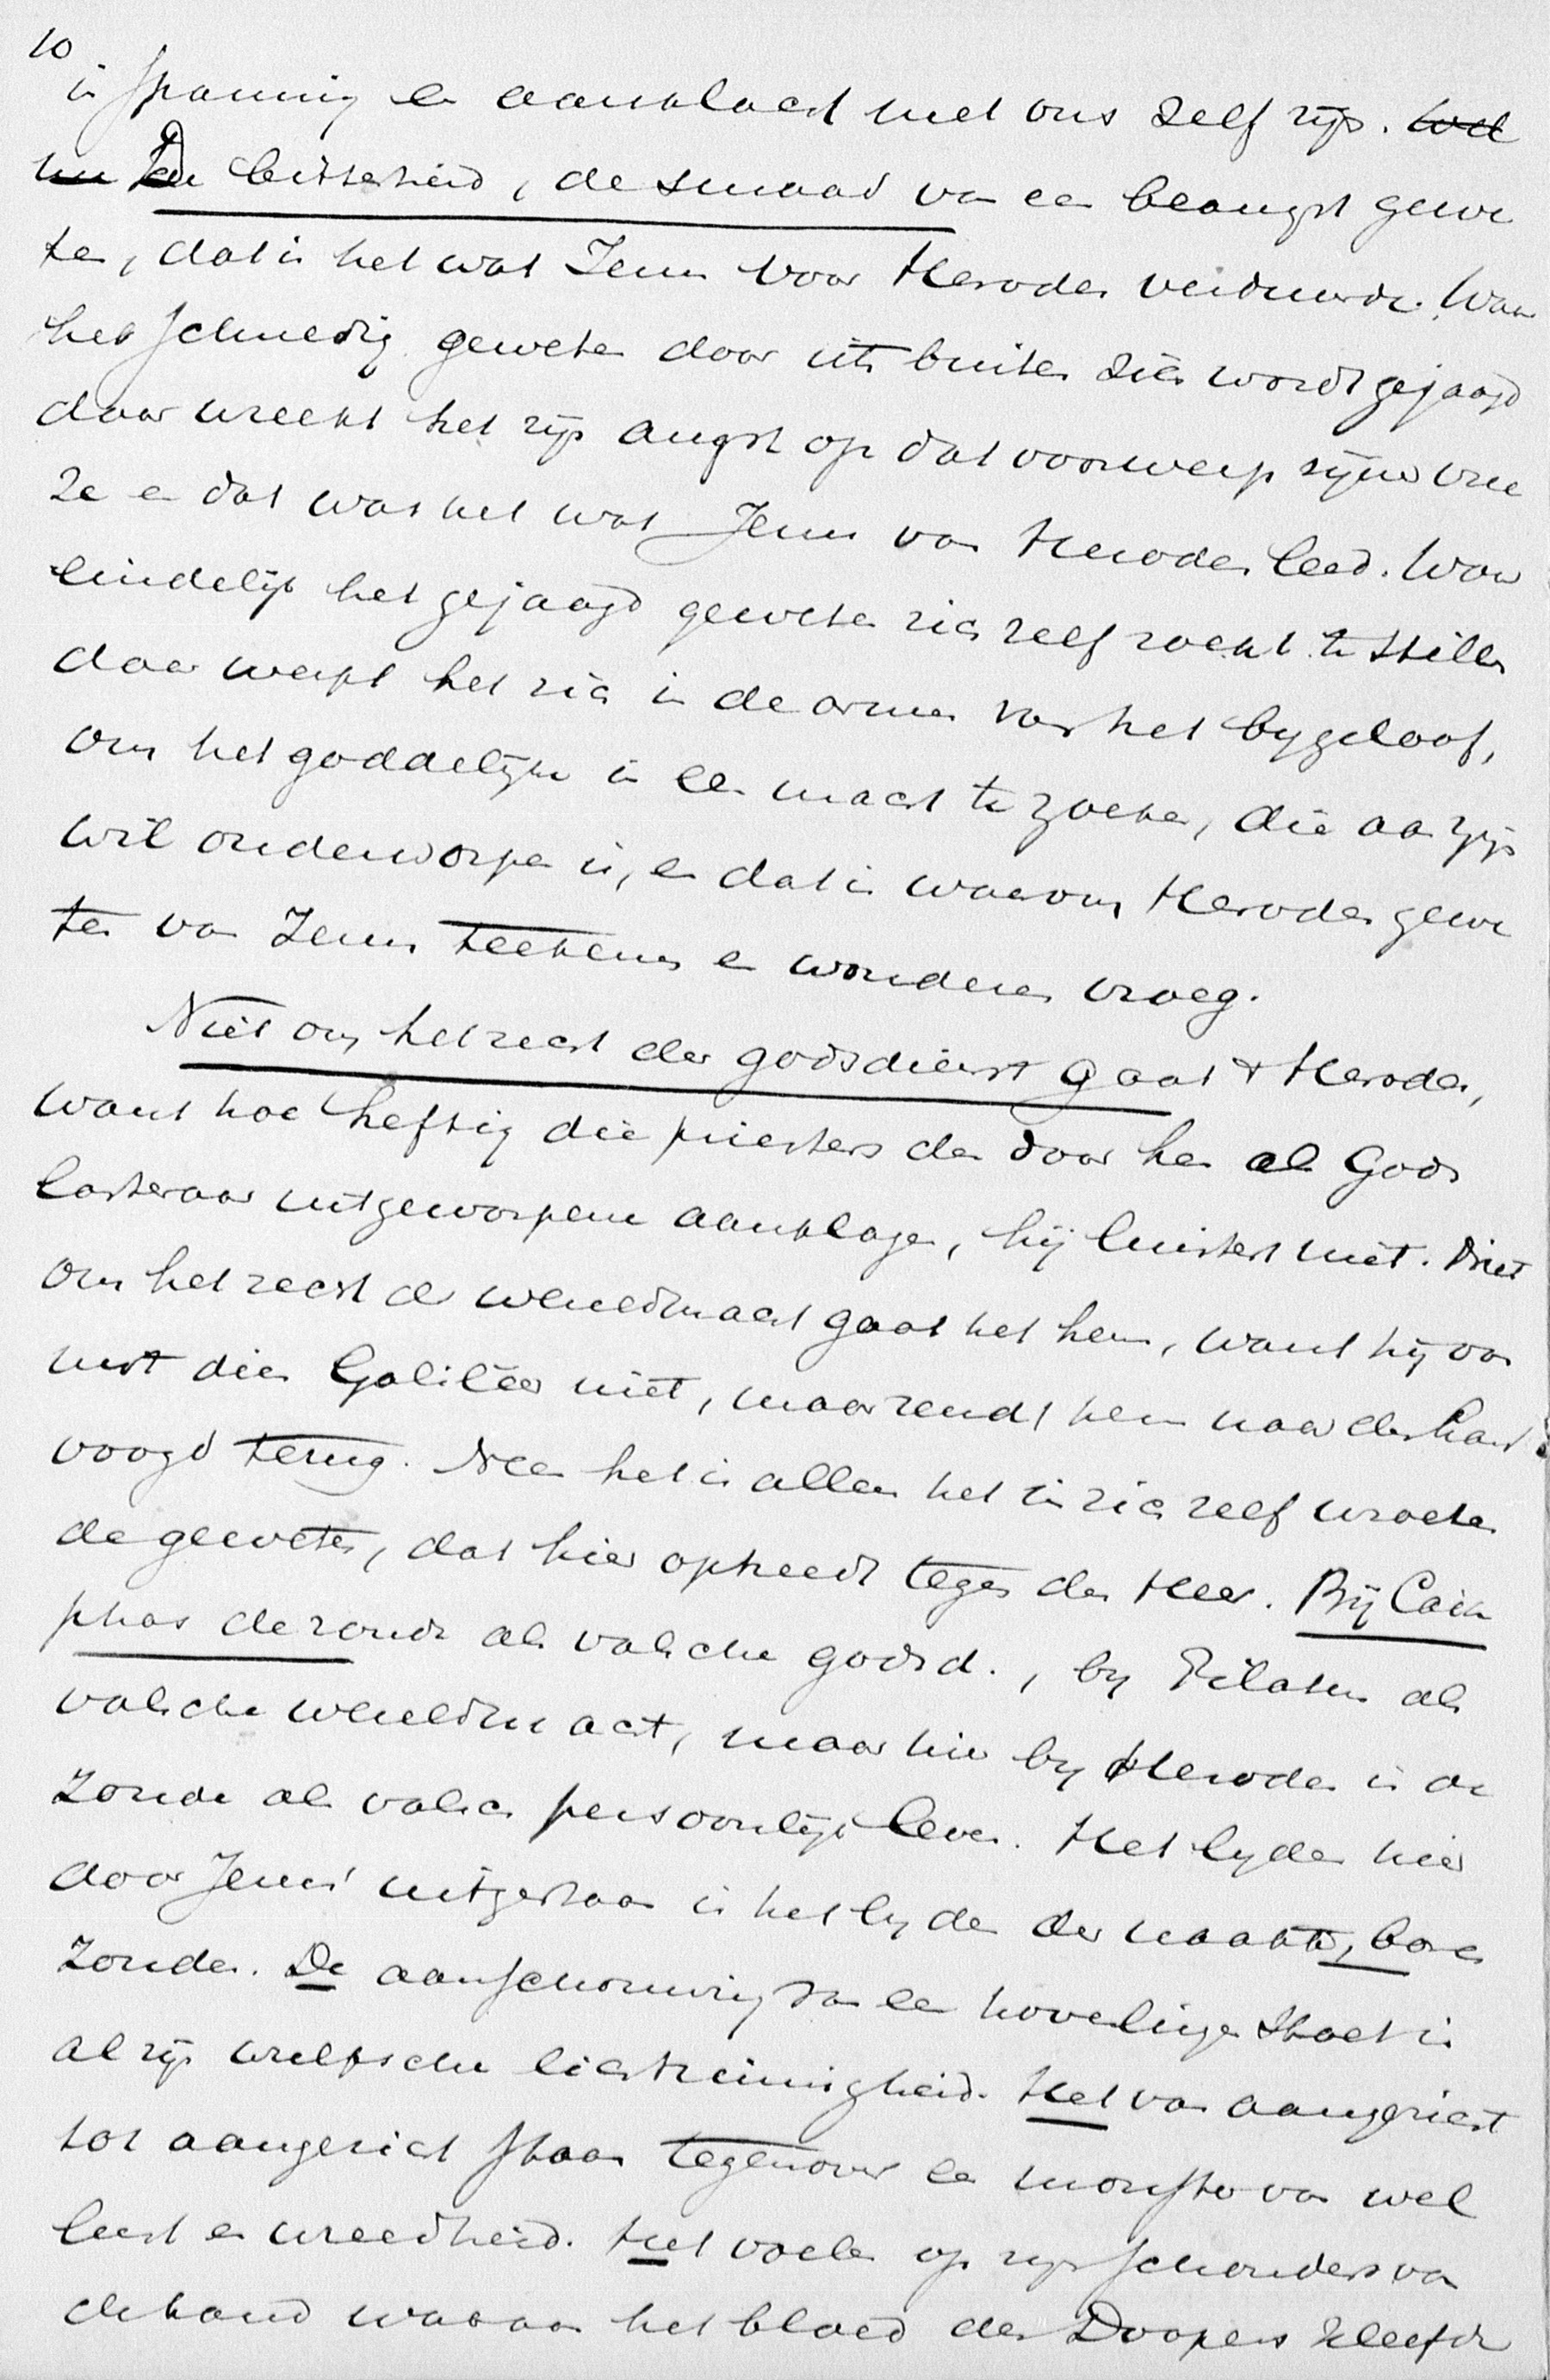 10
in spanning en aanklacht met ons zelf zijn. Wel
nu De bitterheid, de smaad van een beangst gewe
ten, dat is het wat Jezus voor Herodes verduurde. Waar
het schuldig geweten door iets buiten zich wordt gejaagd
daar wreekt het zijn angst op dat voorwerp zijner vree
ze en dat was het wat Jezus van Herodes leed. Waar
eindelijk het gejaagd geweten zich zelf zoekt te stillen
daar werpt het zich in de armen van het bygeloof,
om het goddelijke in een macht te zoeken, die aan zijn
wil onderworpen is, en dat is waarom Herodes gewe
ten van Jezus teekenen en wonderen vroeg.
Niet om het recht der godsdienst gaat 't Herodes,
want hoe heftig die priesters den door hen als Gods
lasteraar uitgeworpene aanklagen, hij luistert niet. Niet
om het recht der wereldmacht gaat het hem, want hij von
nist dien Galileër niet, maar zendt hem naar den land
voogd terug. Neen het is alleen het in zich zelf wroeten
de geweten, dat hier optreedt tegen den Heer. Bij Caia
phas de zonde als valsche godsd., by Pilatus als
valsche wereldmacht, maar hier by Herodes is de
zonde als valsch persoonlijk leven. Het lyden hier
door Jezus uitgestaan is het lyden der naakte, boze
zonde. De aanschouwing van een hovelingenstoet in
al zijn wulpsche lichtzinnigheid. Het van aangezicht
tot aangezicht staan tegenover een monster van wel
lust en wreedheid. Het voelen op zijn schouders van
de hand waaraan het bloed des Doopers kleefde